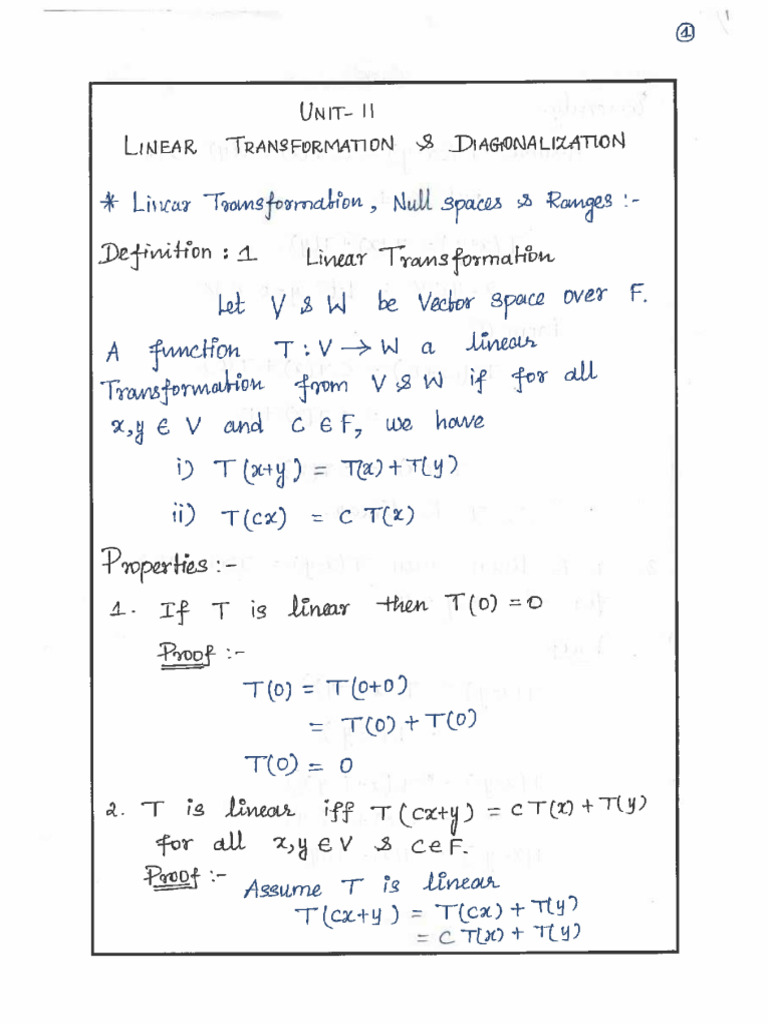 ①
UNIT-II
LINEAR TRANSFORMATION & DIAGONALIZATION
* Linear Transformation, Null spaces & Ranges :-
Definition : 1 Linear Transformation
Let V & W be Vector space over F.
A function T : V → W a linear
Transformation from V & W if for all
x,y ∈ V and C ∈ F, we have
i) T(x+y) = T(x)+T(y)
ii) T(cx) = C T(x)
Properties :-
1. If T is linear then T(0) = 0
Proof :-
T(0) = T(0+0)
= T(0)+T(0)
T(0) = 0
2. T is linear iff T(cx+y) = cT(x)+T(y)
for all x,y ∈ V & C ∈ F.
Proof :- Assume T is linear
T(cx+y) = T(cx)+T(y)
= C T(x) + T(y)